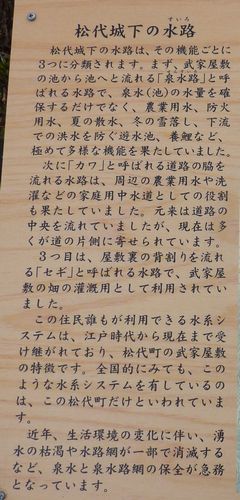 すいろ
松代城下の水路
松代城下の水路は、その機能ごとに
3つに分類されます。まず、武家屋敷
の池から池へと流れる「泉水路」と呼
ばれる水路で、泉水(池)の水量を確
保するだけでなく、農業用水、防火
用水、夏の散水、冬の雪落し、下流
での洪水を防ぐ遊水池、養鯉など、
極めて多様な機能を果たしていました。
次に「カワ」と呼ばれる道路の脇を
流れる水路は、周辺の農業用水や洗
濯などの家庭用中水道としての役割
も果たしていました。元来は道路の
中央を流れていましたが、現在は多
くが道の片側に寄せられています。
3つ目は、屋敷裏の背割りを流れ
る「セギ」と呼ばれる水路で、武家屋
敷の畑の灌漑用として利用されてい
ました。
この住民誰もが利用できる水系シ
ステムは、江戸時代から現在まで受
け継がれており、松代町の武家屋敷
の特徴です。全国的にみても、この
ような水系システムを有しているの
は、この松代町だけといわれていま
す。
近年、生活環境の変化に伴い、湧
水の枯渇や水路網が一部で消滅する
など、泉水と泉水路網の保全が急務
となっています。